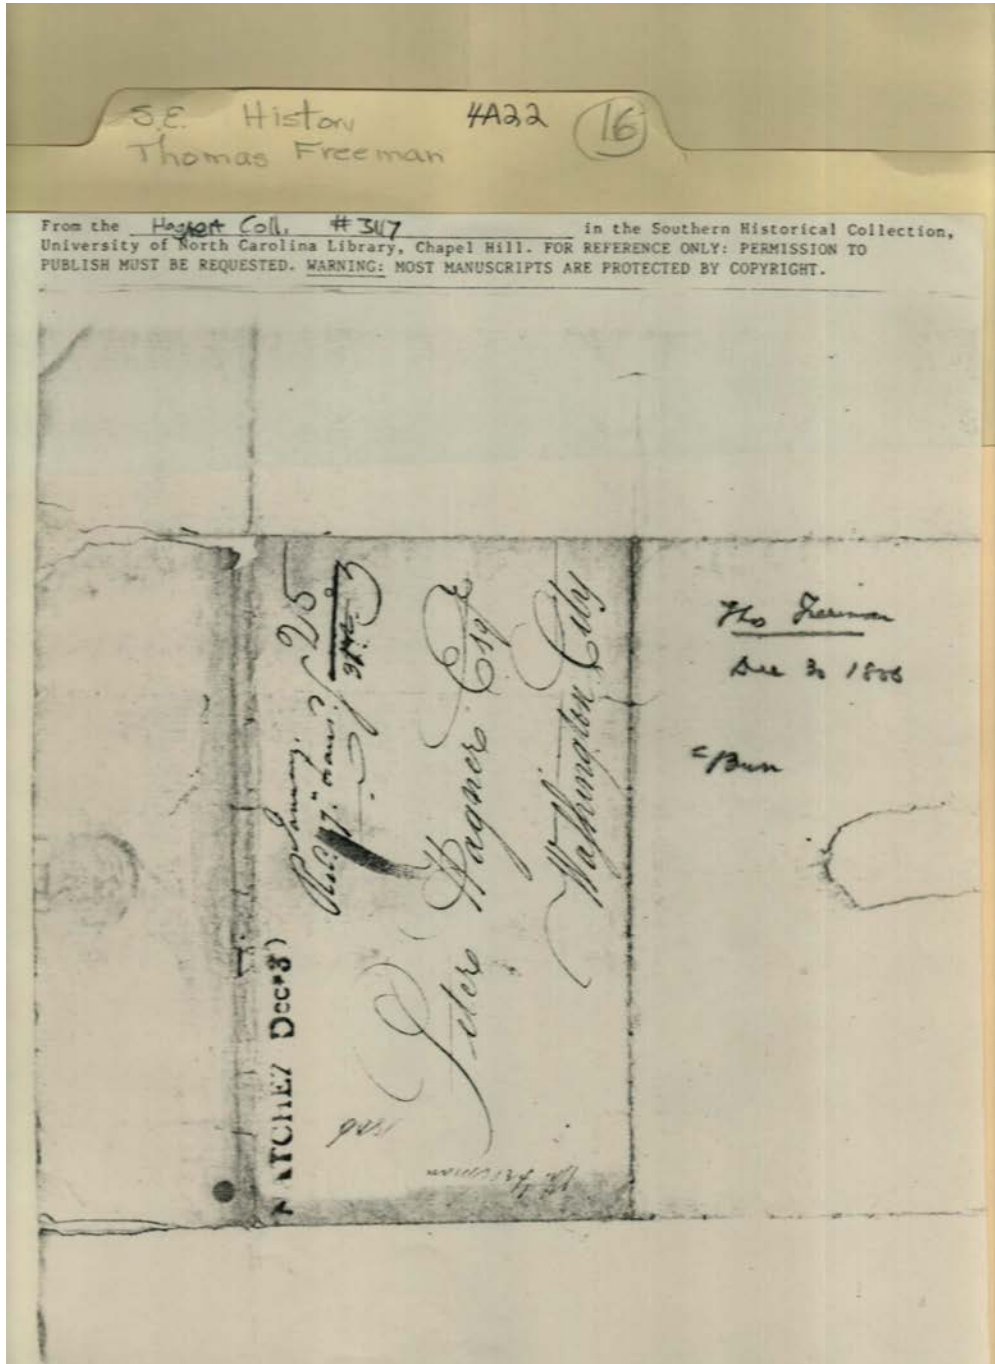 S.E. History 4A22 16
Thomas Freeman
From the Coll. # 3117 in the Southern Historical Collection,
University of North Carolina Library, Chapel Hill. FOR REFERENCE ONLY: PERMISSION TO
PUBLISH MUST BE REQUESTED. WARNING: MOST MANUSCRIPTS ARE PROTECTED BY COPYRIGHT.
NATCHEZ Dec 3)
25
Peter Hagner Esqr
Washington City
1806
Tho Freeman
Tho Freeman
Dec 30 1806